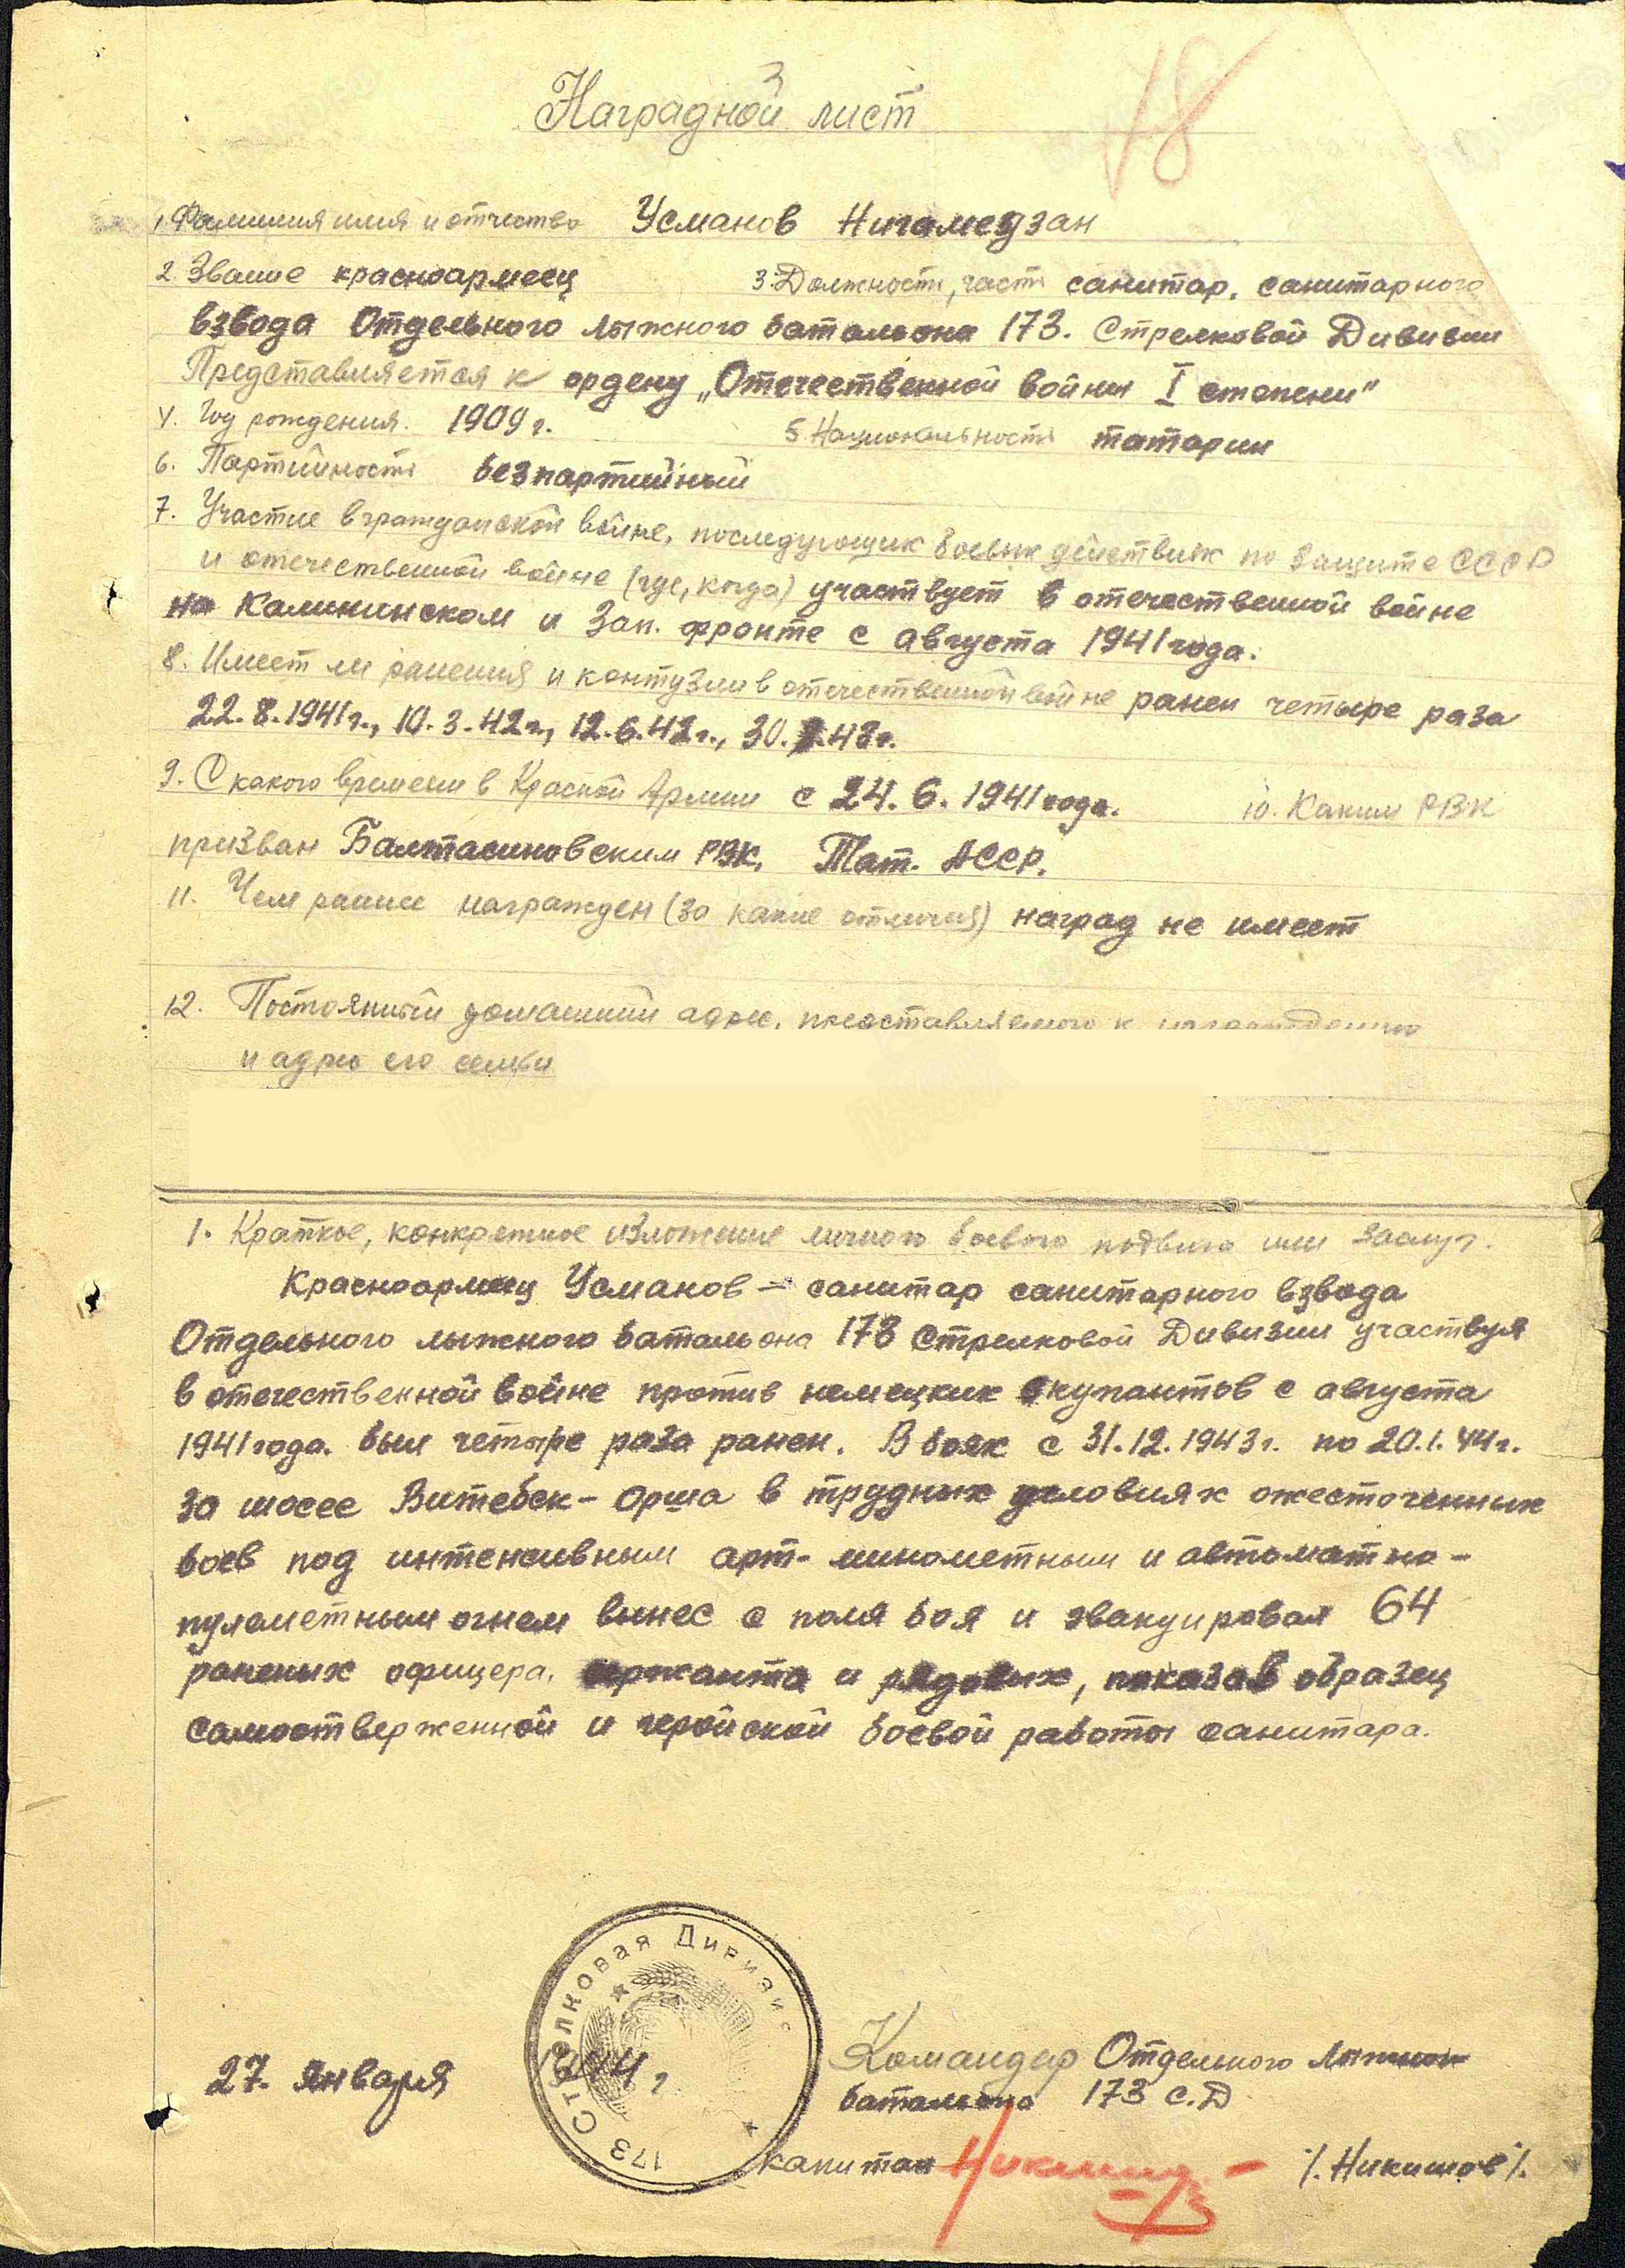 Наградной лист
18
1. Фамилия имя и отчество Усманов Нигамедзан
2. Звание красноармеец 3. Должность, часть санитар, санитарного
взвода Отдельного лыжного батальона 173. Стрелковой Дивизии
Представляется к ордену „Отечественной войны I степени"
4. Год рождения. 1909 г. 5. Национальность татарин
6. Партийность безпартийный
7. Участие в гражданской войне, последующих боевых действиях по защите СССР
и отечественной войне (где, когда) участвует в отечественной войне
на Калининском и Зап. фронте с августа 1941 года.
8. Имеет ли ранения и контузии в отечественной войне ранен четыре раза
22.8.1941 г., 10.3.42 г., 12.6.42 г., 30. .43 г.
9. С какого времени в Красной Армии с 24.6.1941 года. 10. Каким РВК
призван Балтасиновским РВК, Тат. АССР.
11. Чем ранее награжден (за какие отличия) наград не имеет
12. Постоянный домашний адрес, представляемого к награждению
и адрес его семьи
1. Краткое, конкретное изложение личного боевого подвига или заслуг.
Красноармеец Усманов – санитар санитарного взвода
Отдельного лыжного батальона 173 Стрелковой Дивизии участвуя
в отечественной войне против немецких окупантов с августа
1941 года. был четыре раза ранен. В боях с 31.12.1943 г. по 20.1.44 г.
за шосее Витебск – Орша в трудных условиях ожесточенных
боев под интенсивным арт- минометным и автоматно-
пулеметным огнем вынес с поля боя и эвакуировал 64
раненых офицера, сержанта и рядовых, показав образец
самоотверженной и геройской боевой работы санитара.
173 Стрелковая Дивизия
27. января 1944 г. Командир Отдельного Лыжного
батальона 173 С.Д
капитан /. Никишов /.